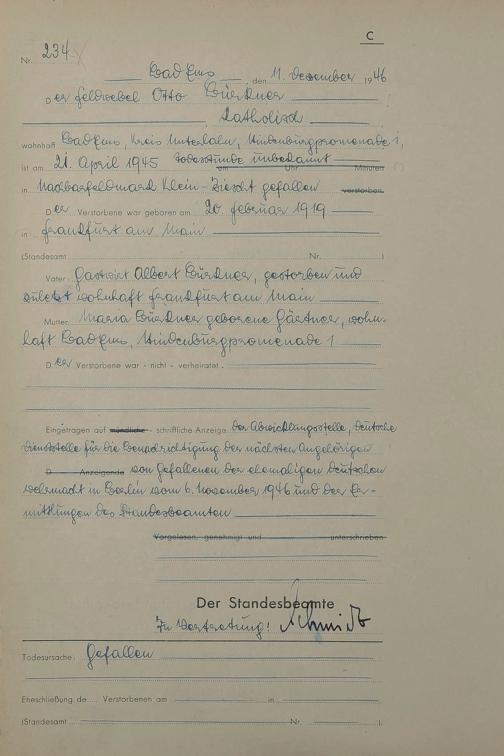 C
Nr. 234
Bad Ems, den 11. Dezember 1946
Der Feldwebel Otto Bürkner
katholisch
wohnhaft Bad Ems, Kreis Unterlahn, Hindenburgpromenade 1,
ist am 21. April 1945 Todesstunde unbekannt um Uhr Minuten
in Nachbarfeldmark Klein-Ziescht gefallen verstorben.
Der Verstorbene war geboren am 20. Februar 1919
in Frankfurt am Main
(Standesamt Nr. )
Vater: Gastwirt Albert Bürkner, gestorben und
zuletzt wohnhaft Frankfurt am Main
Mutter: Maria Bürkner geborene Gärtner, wohn-
haft Bad Ems, Hindenburgpromenade 1
Der Verstorbene war - nicht - verheiratet.
Eingetragen auf mündliche - schriftliche Anzeige der Abwicklungsstelle, Deutsche
Dienststelle für die Benachrichtigung der nächsten Angehörigen
D Anzeigende von Gefallenen der ehemaligen Deutschen
Wehrmacht in Berlin vom 6. November 1946 und der Er-
mittlungen des Standesbeamten
Vorgelesen, genehmigt und unterschrieben
Der Standesbeamte
In Vertretung! Schmidt
Todesursache: Gefallen
Eheschließung de Verstorbenen am in
(Standesamt Nr. ).